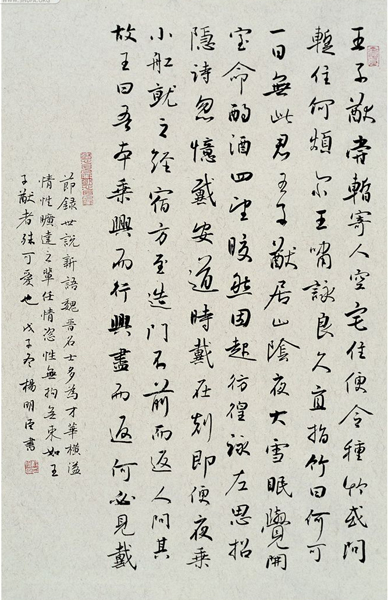 王子猷嘗暫寄人空宅住便令種竹或問
暫住何煩尔王嘯詠良久直指竹曰何可
一日無此君王子猷居山陰夜大雪眠覺開
室命酌酒四望皎然因起彷徨詠左思招
隱詩忽憶戴安道時戴在剡即便夜乘
小船就之經宿方至造門不前而返人問其
故王曰吾本乘興而行興盡而返何必見戴
節錄世說新語魏晉名士多為才華橫溢
情性曠達之輩任情恣性無拘無束如王
子猷者殊可愛也 戊子冬楊明臣書